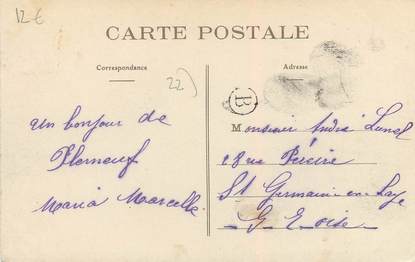 12€
CARTE POSTALE
Correspondance
Adresse
22)
B
un bonjour de
Plerneuf
Maria Marcelle
Monsieur André Lunel
28 rue Péreire
St Germain en Laye
S. et Oise